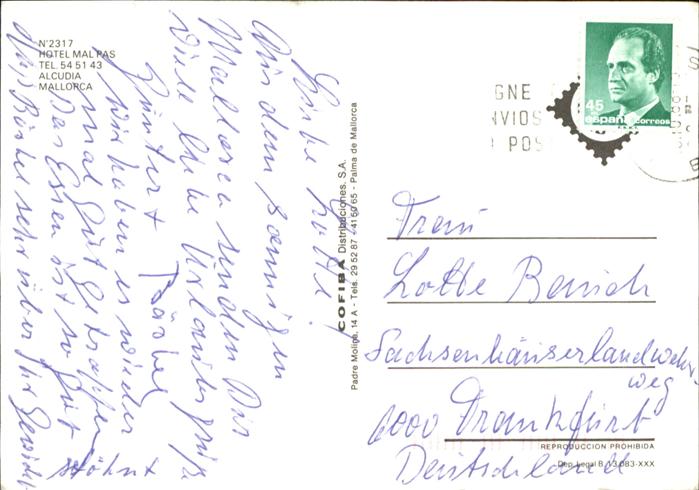 N° 2317
HOTEL MAL PAS
TEL. 54 51 43
ALCUDIA
MALLORCA
Liebe Lotte!
Aus dem sonnigen
Mallorca senden Dir
viele liebe Urlaubsgrüße
Günter + Bärbel
Wir haben es wieder
mal gut getroffen
Das Essen ist so gut
das Bärbel sehr über ihr Gewicht
stöhnt
COFIBA Distribuciones, S.A.
Padre Molina, 14 A - Tels. 29 52 87 - 41 50 65 - Palma de Mallorca
GNE
NVIOS
POS
45
españa correos
Frau
Lotte Benich
Sachsenhäuserlandwehr
weg
6000 Frankfurt
REPRODUCCION PROHIBIDA
Dep. Legal B. 13.083-XXX
Deutschland